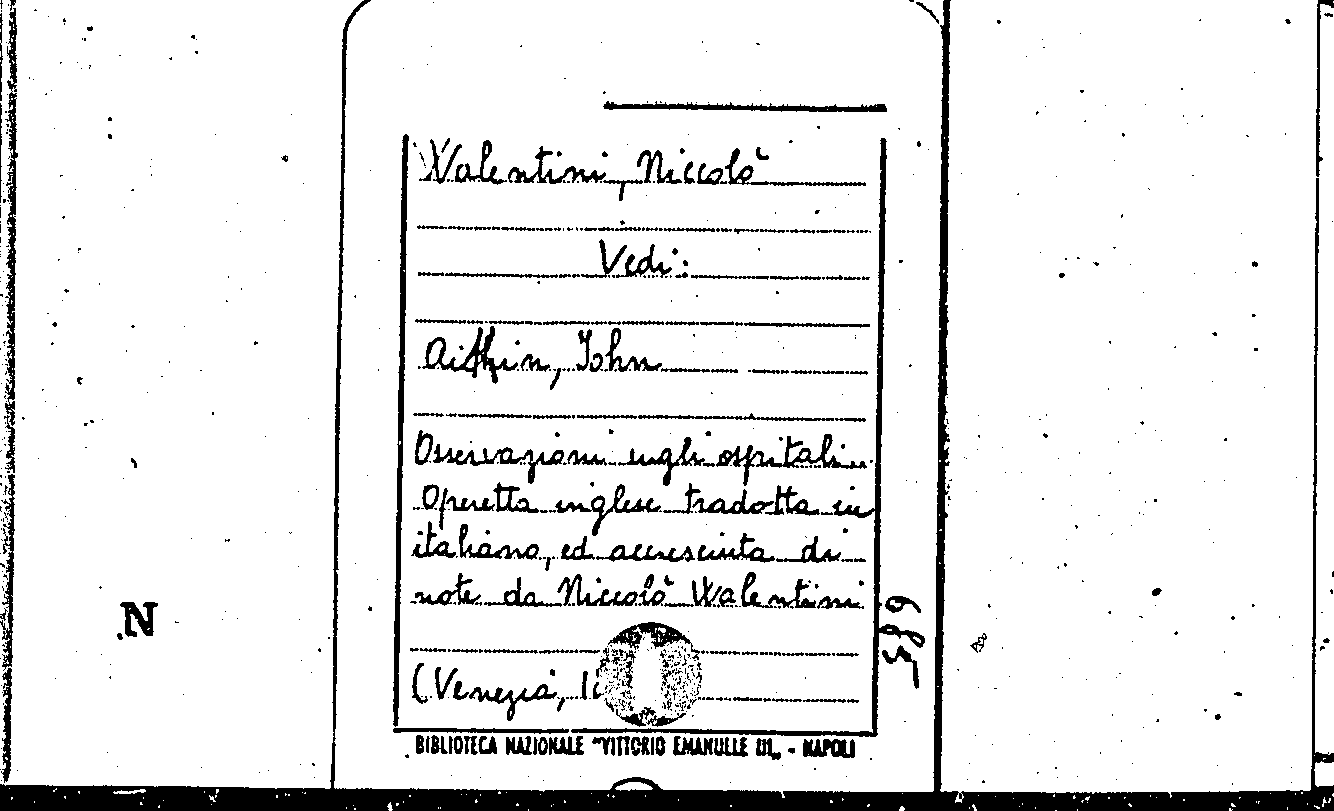 Walentini, Niccolò
Vedi:
Aitkin, John
Osservazioni sugli ospitali..
Operetta inglese tradotta in
italiano, ed accresciuta di
note da Niccolò Walentini
(Venezia,
BIBLIOTECA NAZIONALE "VITTORIO EMANULLE III„ - NAPOLI
N